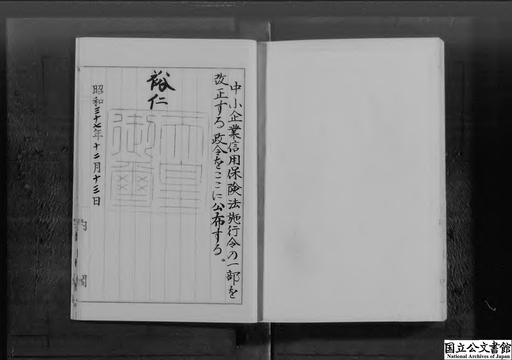 中小企業信用保険法施行令の一部を
改正する政令をここに公布する。
裕仁
天皇
御璽
昭和三十七年十二月十三日
内閣
国立公文書館
National Archives of Japan